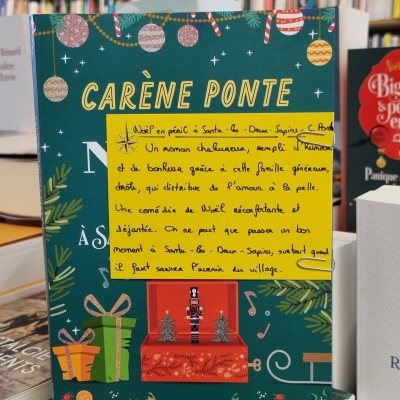 CARÈNE PONTE
Noël en péril à Santa-les-Deux-Sapins - C. Ponte
Un roman chaleureux, rempli d'humour
et de bonheur grâce à cette famille généreuse,
drôle, qui distribue de l'amour à la pelle.
Une comédie de Noël réconfortante et
déjantée. On ne peut que passer un bon
moment à Santa-les-Deux-Sapins, surtout quand
il faut sauver l'avenir du village.
N
À SA
Big
& pé
en
Panique
R